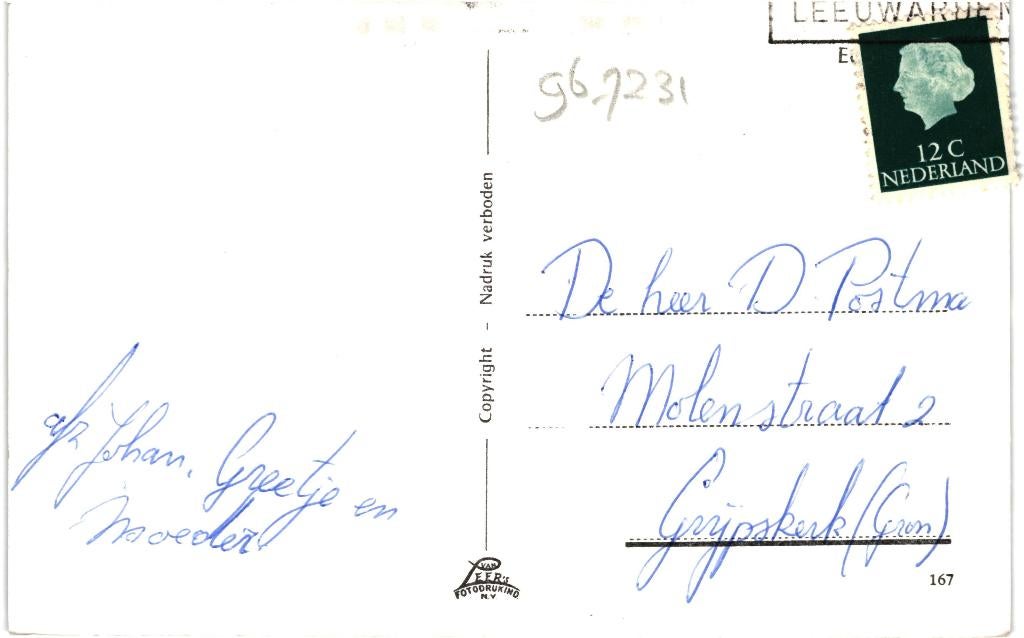 afz Johan, Greetje en
Moeder.
Copyright - Nadruk verboden
VAN
LEER'S
FOTODRUKIND
N.V
96.7231
LEEUWARDEN
12 C
NEDERLAND
De heer D. Postma
Molenstraat 2
Grijpskerk (Gron)
167